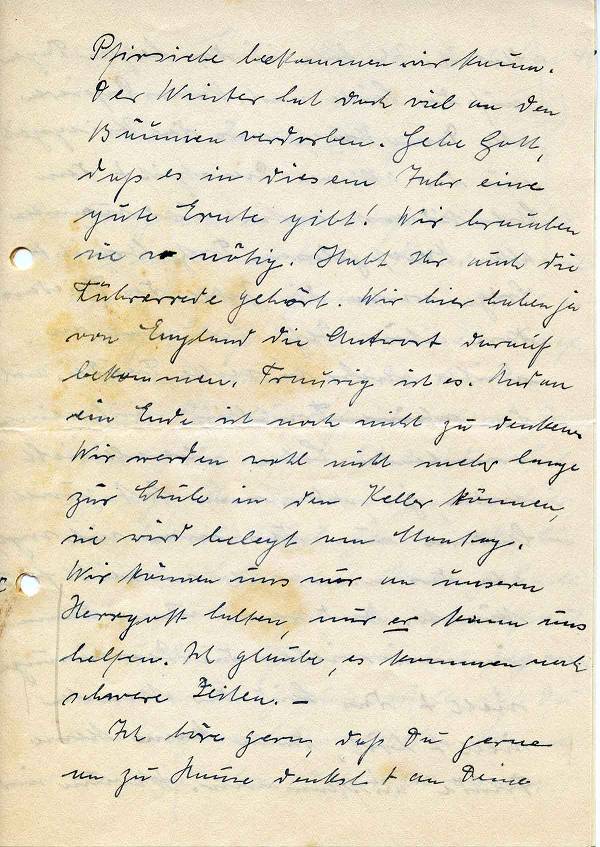 Pfirsiche bekommen wir kaum.
Der Winter hat doch viel an den
Bäumen verdorben. Gebe Gott,
daß es in diesem Jahr eine
gute Ernte gibt! Wir brauchen
sie so nötig. Habt Ihr auch die
Führerrede gehört. Wir hier haben ja
von England die Antwort darauf
bekommen. Traurig ist es. Und an
ein Ende ist noch nicht zu denken.
Wir werden wohl nicht mehr lange
zur Schule in den Keller können,
sie wird belegt am Montag.
Wir können uns nur an unsern
Herrgott halten, nur er kann uns
helfen. Ich glaube, es kommen noch
schwere Zeiten. –
Ich höre gern, daß Du gerne
an zu Hause denkst + an Deine